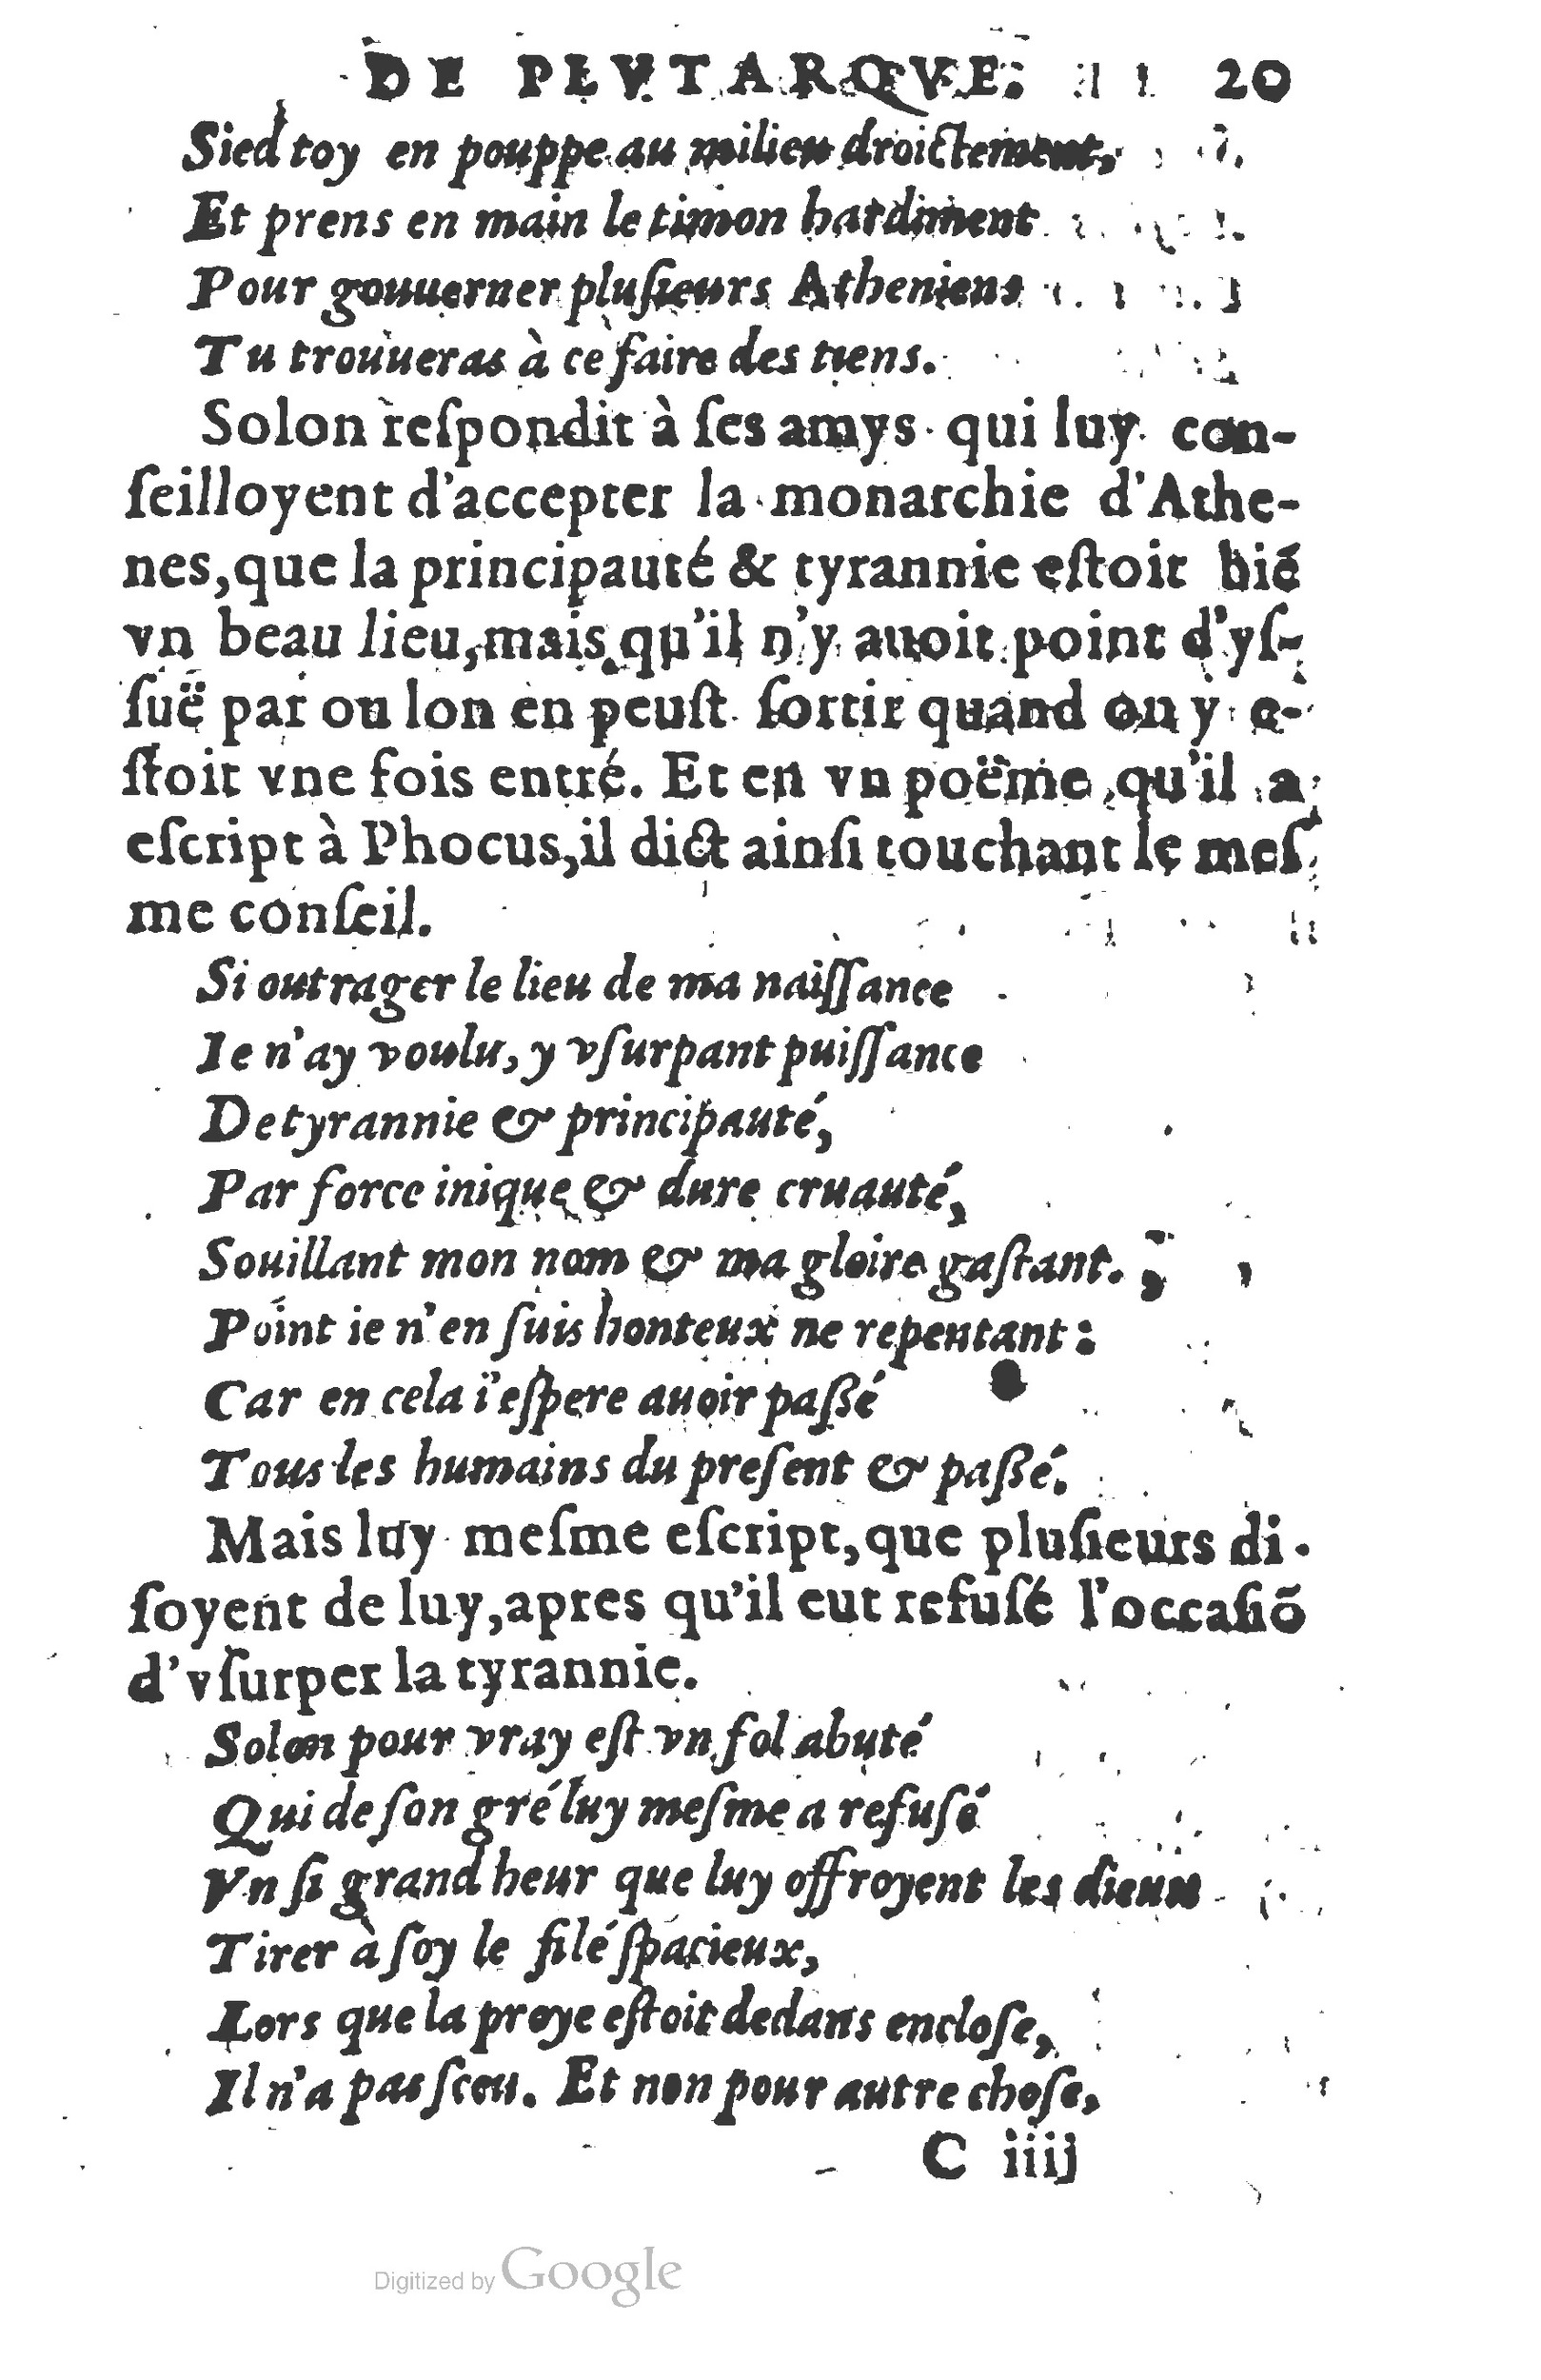 DE PLVTARQVE. 20
Sied toy en pouppe au milieu droictement,
Et prens en main le timon hardiment
Pour gouuerner pluſieurs Atheniens
Tu trouueras à ce faire des tiens.
Solon reſpondit à ſes amys qui luy con-
ſeilloyent d'accepter la monarchie d'Athe-
nes, que la principauté & tyrannie eſtoit biē
vn beau lieu, mais qu'il n'y auoit point d'yſ-
ſuë par ou lon en peuſt ſortir quand on y e-
ſtoit vne fois entré. Et en vn poëme qu'il a
eſcript à Phocus, il dict ainſi touchant le meſ
me conſeil.
Si outrager le lieu de ma naiſſance
Ie n'ay voulu, y vſurpant puiſſance
De tyrannie & principauté,
Par force inique & dure cruauté,
Souillant mon nom & ma gloire gaſtant.
Point ie n'en ſuis honteux ne repentant:
Car en cela i'eſpere auoir paßé
Tous les humains du preſent & paßé.
Mais luy meſme eſcript, que pluſieurs di-
ſoyent de luy, apres qu'il eut refuſé l'occaſiō
d'vſurper la tyrannie.
Solon pour vray eſt vn fol abuté
Qui de ſon gré luy meſme a refuſé
Vn ſi grand heur que luy offroyent les dieux
Tirer à ſoy le filé ſpacieux,
Lors que la proye eſtoit dedans encloſe,
Il n'a pas ſceu. Et non pour autre choſe,
C iiij
Digitized by Google